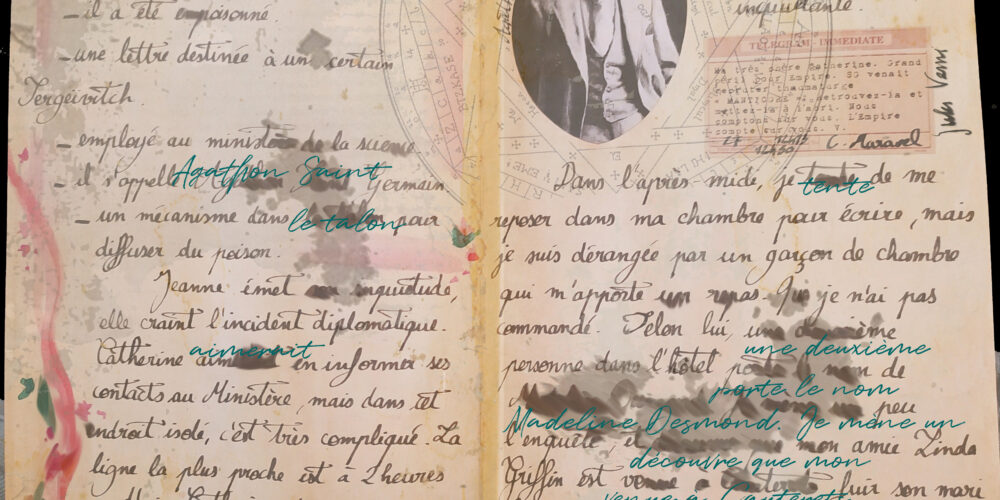 - il a été empoisonné.
- une lettre destinée à un certain
Sergeivitch
- employé au ministère de la science
- il s'appelle Agathon Saint Germain
- un mécanisme dans le talon pour
diffuser du poison.
Jeanne émet son inquiétude,
elle craint l'incident diplomatique.
Catherine aimerait en informer ses
contacts au Ministère, mais dans cet
endroit isolé, c'est très compliqué. La
ligne la plus proche est à 2 heures
inquiétante.
TELEGRAM IMMEDIATE
Ma très chère Catherine. Grand
péril pour Empire. SG venait
recruter thaumaturge
"MANTICORE". Retrouvez-la et
mettez-la à l'abri. Nous
comptons sur vous. L'Empire
compte sur vous. V.
27 12H15
12H30
Dans l'après-midi, je tente de me
reposer dans ma chambre pour écrire, mais
je suis dérangée par un garçon de chambre
qui m'apporte un repas que je n'ai pas
commandé. Selon lui, une deuxième
personne dans l'hôtel porte le nom de
Madeline Desmond. Je mène un peu
l'enquête et découvre que mon amie Linda
Griffin est venue à fuir son mari